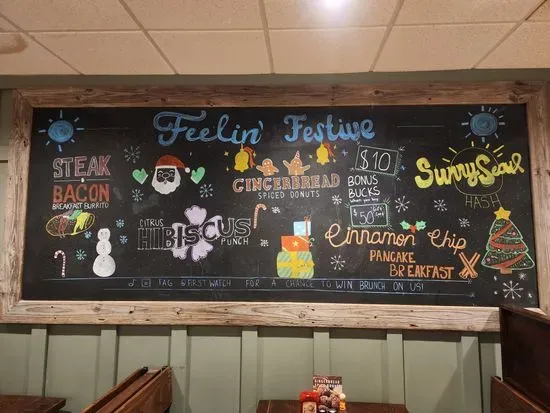 Feelin' Festive
STEAK
&
BACON
BREAKFAST BURRITO
GINGERBREAD
SPICED DONUTS
$10
BONUS
BUCKS
when you buy
$50
SunnySeoul
HASH
CITRUS
HIBISCUS
PUNCH
Cinnamon Chip
PANCAKE
BREAKFAST
TAG @FIRSTWATCH FOR A CHANCE TO WIN BRUNCH ON US!
GINGERBREAD